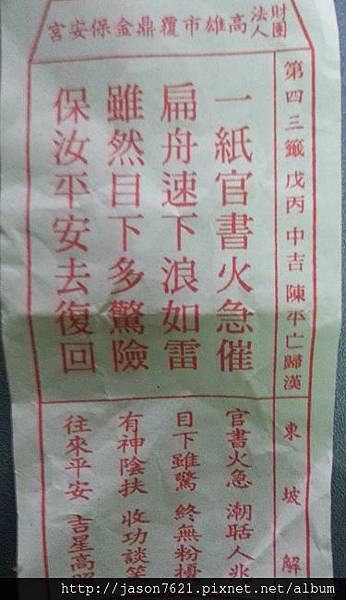 財團法人高雄市覆鼎金保安宮
第四三籤 戊丙 中吉 陳平亡歸漢
一紙官書火急催
扁舟速下浪如雷
雖然目下多驚險
保汝平安去復回
東坡解
官書火急 潮聒人
目下雖驚 終無粉擾
有神陰扶 收功談笑
往來平安 吉星高照
http://jason7621.pixnet.net/album